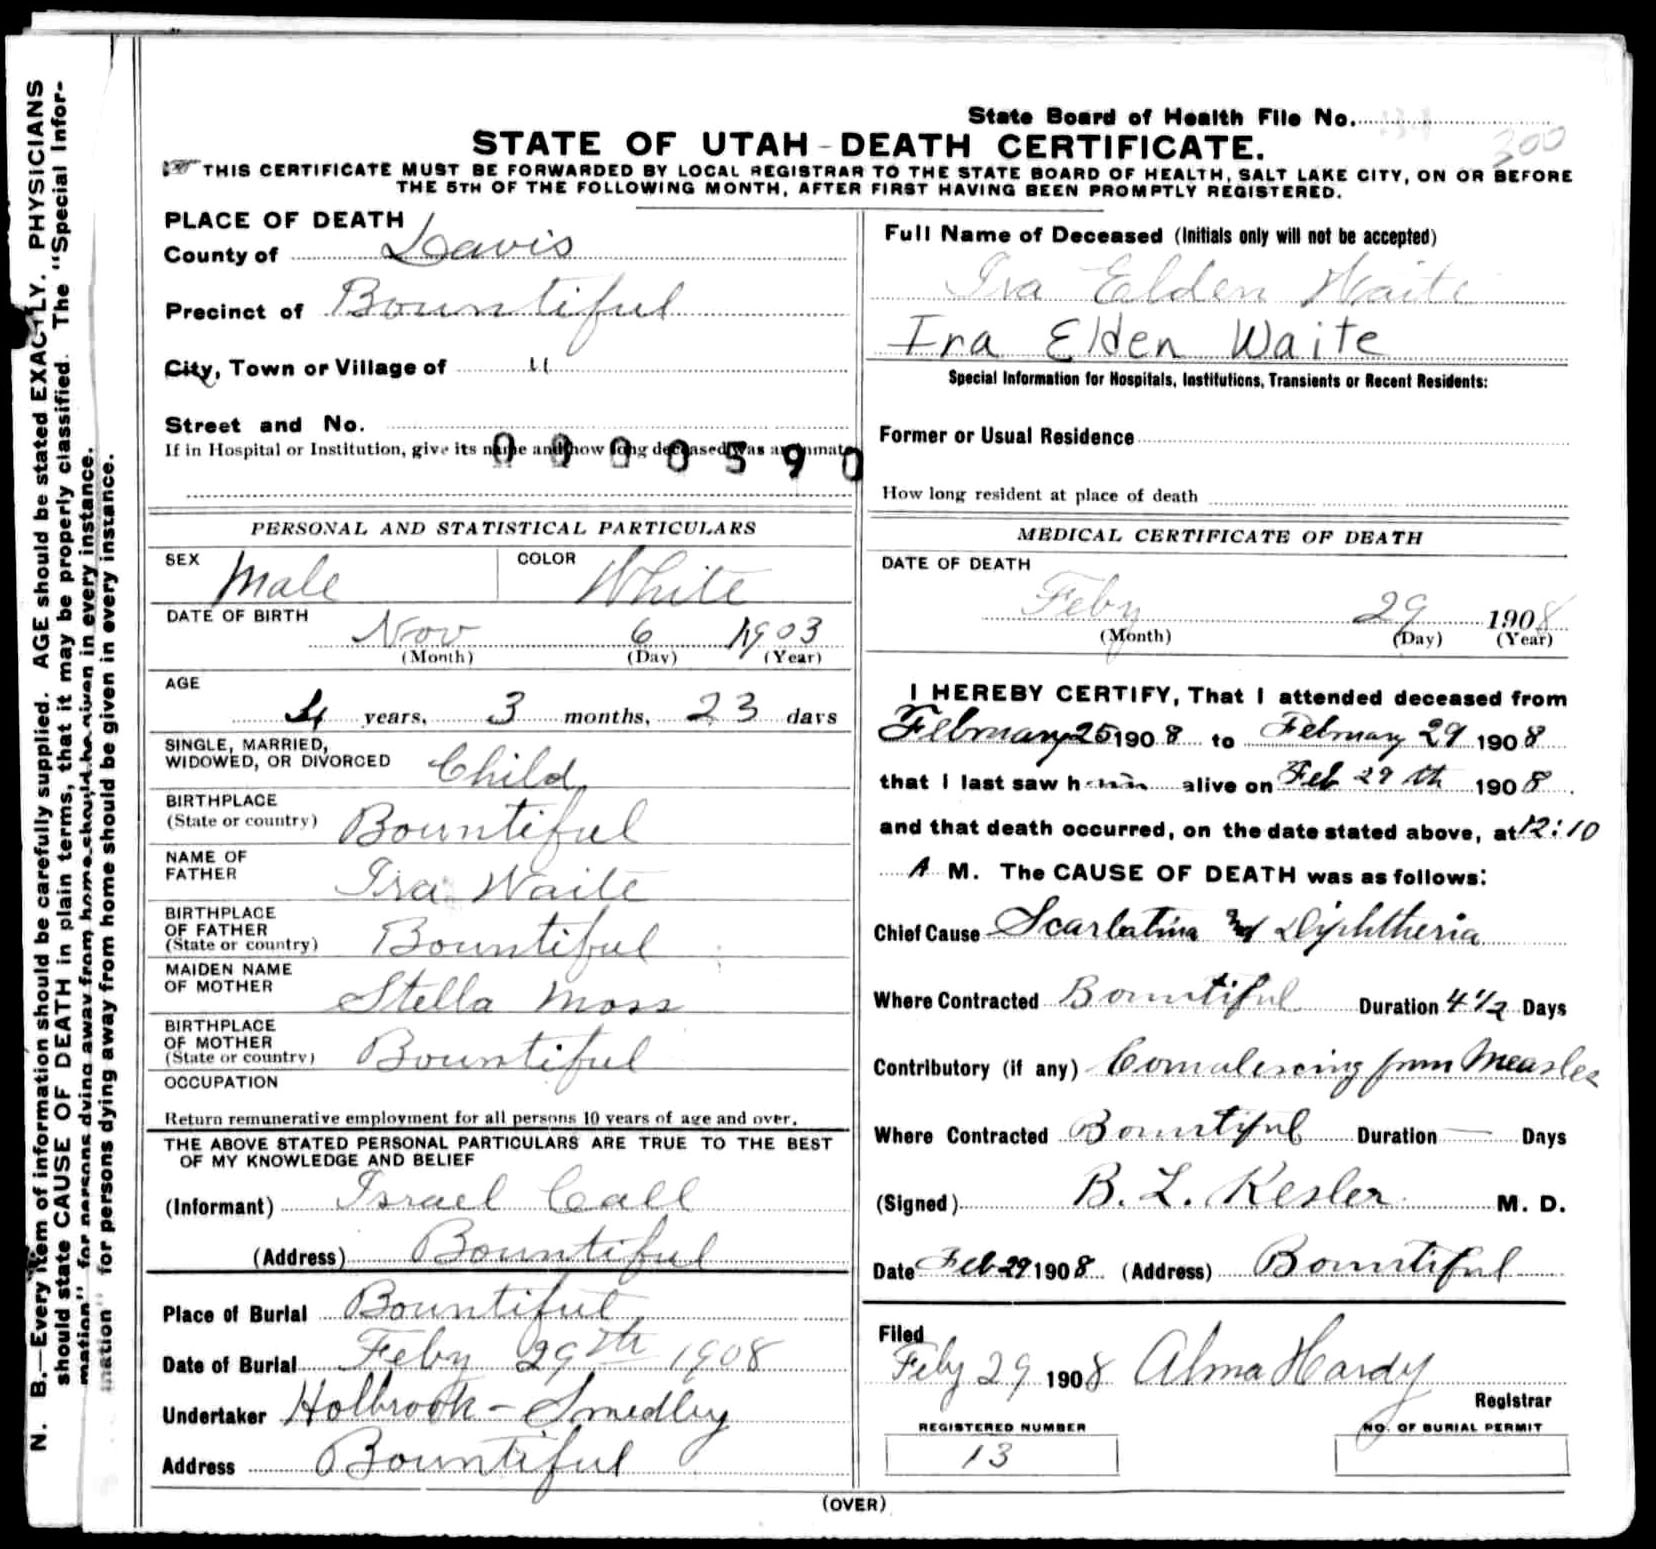 N. B.—Every item of information should be carefully supplied. AGE should be stated EXACTLY. PHYSICIANS
should state CAUSE OF DEATH in plain terms, that it may be properly classified. The "Special Infor-
mation" for persons dying away from home should be given in every instance.
mation" for persons dying away from home should be given in every instance.
State Board of Health File No.
300
STATE OF UTAH - DEATH CERTIFICATE.
THIS CERTIFICATE MUST BE FORWARDED BY LOCAL REGISTRAR TO THE STATE BOARD OF HEALTH, SALT LAKE CITY, ON OR BEFORE
THE 5TH OF THE FOLLOWING MONTH, AFTER FIRST HAVING BEEN PROMPTLY REGISTERED.
PLACE OF DEATH
County of Davis
Precinct of Bountiful
City, Town or Village of "
Street and No.
If in Hospital or Institution, give its name and how long deceased was an inmate
0000590
PERSONAL AND STATISTICAL PARTICULARS
SEX Male COLOR White
DATE OF BIRTH
Nov 6 1903
(Month) (Day) (Year)
AGE
4 years, 3 months, 23 days
SINGLE, MARRIED,
WIDOWED, OR DIVORCED Child
BIRTHPLACE
(State or country) Bountiful
NAME OF
FATHER Ira Waite
BIRTHPLACE
OF FATHER
(State or country) Bountiful
MAIDEN NAME
OF MOTHER Stella Moss
BIRTHPLACE
OF MOTHER
(State or country) Bountiful
OCCUPATION
Return remunerative employment for all persons 10 years of age and over.
THE ABOVE STATED PERSONAL PARTICULARS ARE TRUE TO THE BEST
OF MY KNOWLEDGE AND BELIEF
(Informant) Israel Call
(Address) Bountiful
Place of Burial Bountiful
Date of Burial Feby 29th 1908
Undertaker Holbrook - Smedley
Address Bountiful
Full Name of Deceased (Initials only will not be accepted)
Ira Elden Waite
Ira Elden Waite
Special Information for Hospitals, Institutions, Transients or Recent Residents:
Former or Usual Residence
How long resident at place of death
MEDICAL CERTIFICATE OF DEATH
DATE OF DEATH
Feby 29 1908
(Month) (Day) (Year)
I HEREBY CERTIFY, That I attended deceased from
February 25 1908 to February 29 1908
that I last saw him alive on Feb 29th 1908.
and that death occurred, on the date stated above, at 12:10
A M. The CAUSE OF DEATH was as follows:
Chief Cause Scarlatina and Diphtheria
Where Contracted Bountiful Duration 4 1/2 Days
Contributory (if any) Convalescing from Measles
Where Contracted Bountiful Duration — Days
(Signed) B. L. Kesler M. D.
Date Feb 29 1908 (Address) Bountiful
Filed
Feby 29 1908 Alma Hardy
Registrar
REGISTERED NUMBER
13
NO. OF BURIAL PERMIT
(OVER)